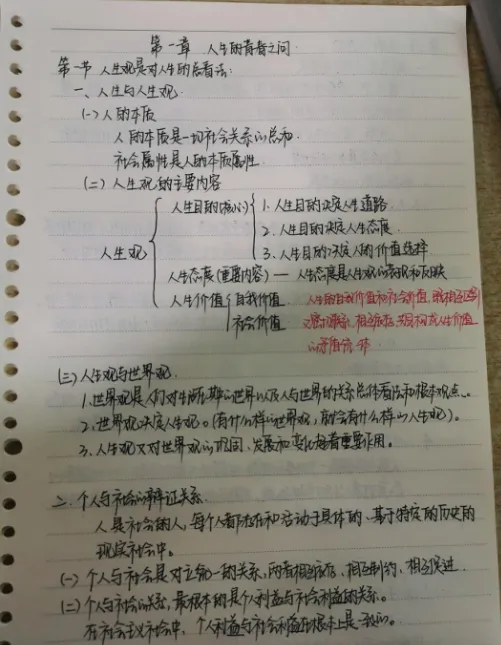 第一章 人生的青春之问
第一节 人生观是对人生的总看法:
一、人生与人生观.
(一)人的本质
人的本质是一切社会关系的总和.
社会属性是人的本质属性.
(二)人生观的主要内容
人生观
人生目的(核心)
1. 人生目的决定人生道路.
2. 人生目的决定人生态度.
3. 人生目的决定人的价值选择
人生态度(重要内容) — 人生态度是人生观的表现和反映
人生价值
自我价值.
社会价值
人生的自我价值和社会价值,既相互区别
又密切联系,相互依存,共同构成人生价值
的矛盾统一体
(三)人生观与世界观.
1.世界观是人们对生活在其中的世界以及人与世界的关系总体看法和根本观点.
2.世界观决定人生观。(有什么样的世界观,就会有什么样的人生观)。
3.人生观又对世界观的巩固、发展和变化起着重要作用。
二. 个人与社会的辩证关系.
人是社会的人,每个人都存在和活动于具体的、基于特定的历史的
现实社会中。
(一)个人与社会是对立统一的关系,两者相互依存,相互制约、相互促进.
(二)个人与社会的关系,最根本的是个人利益与社会利益的关系。
在社会主义社会中,个人利益与社会利益在根本上是一致的。